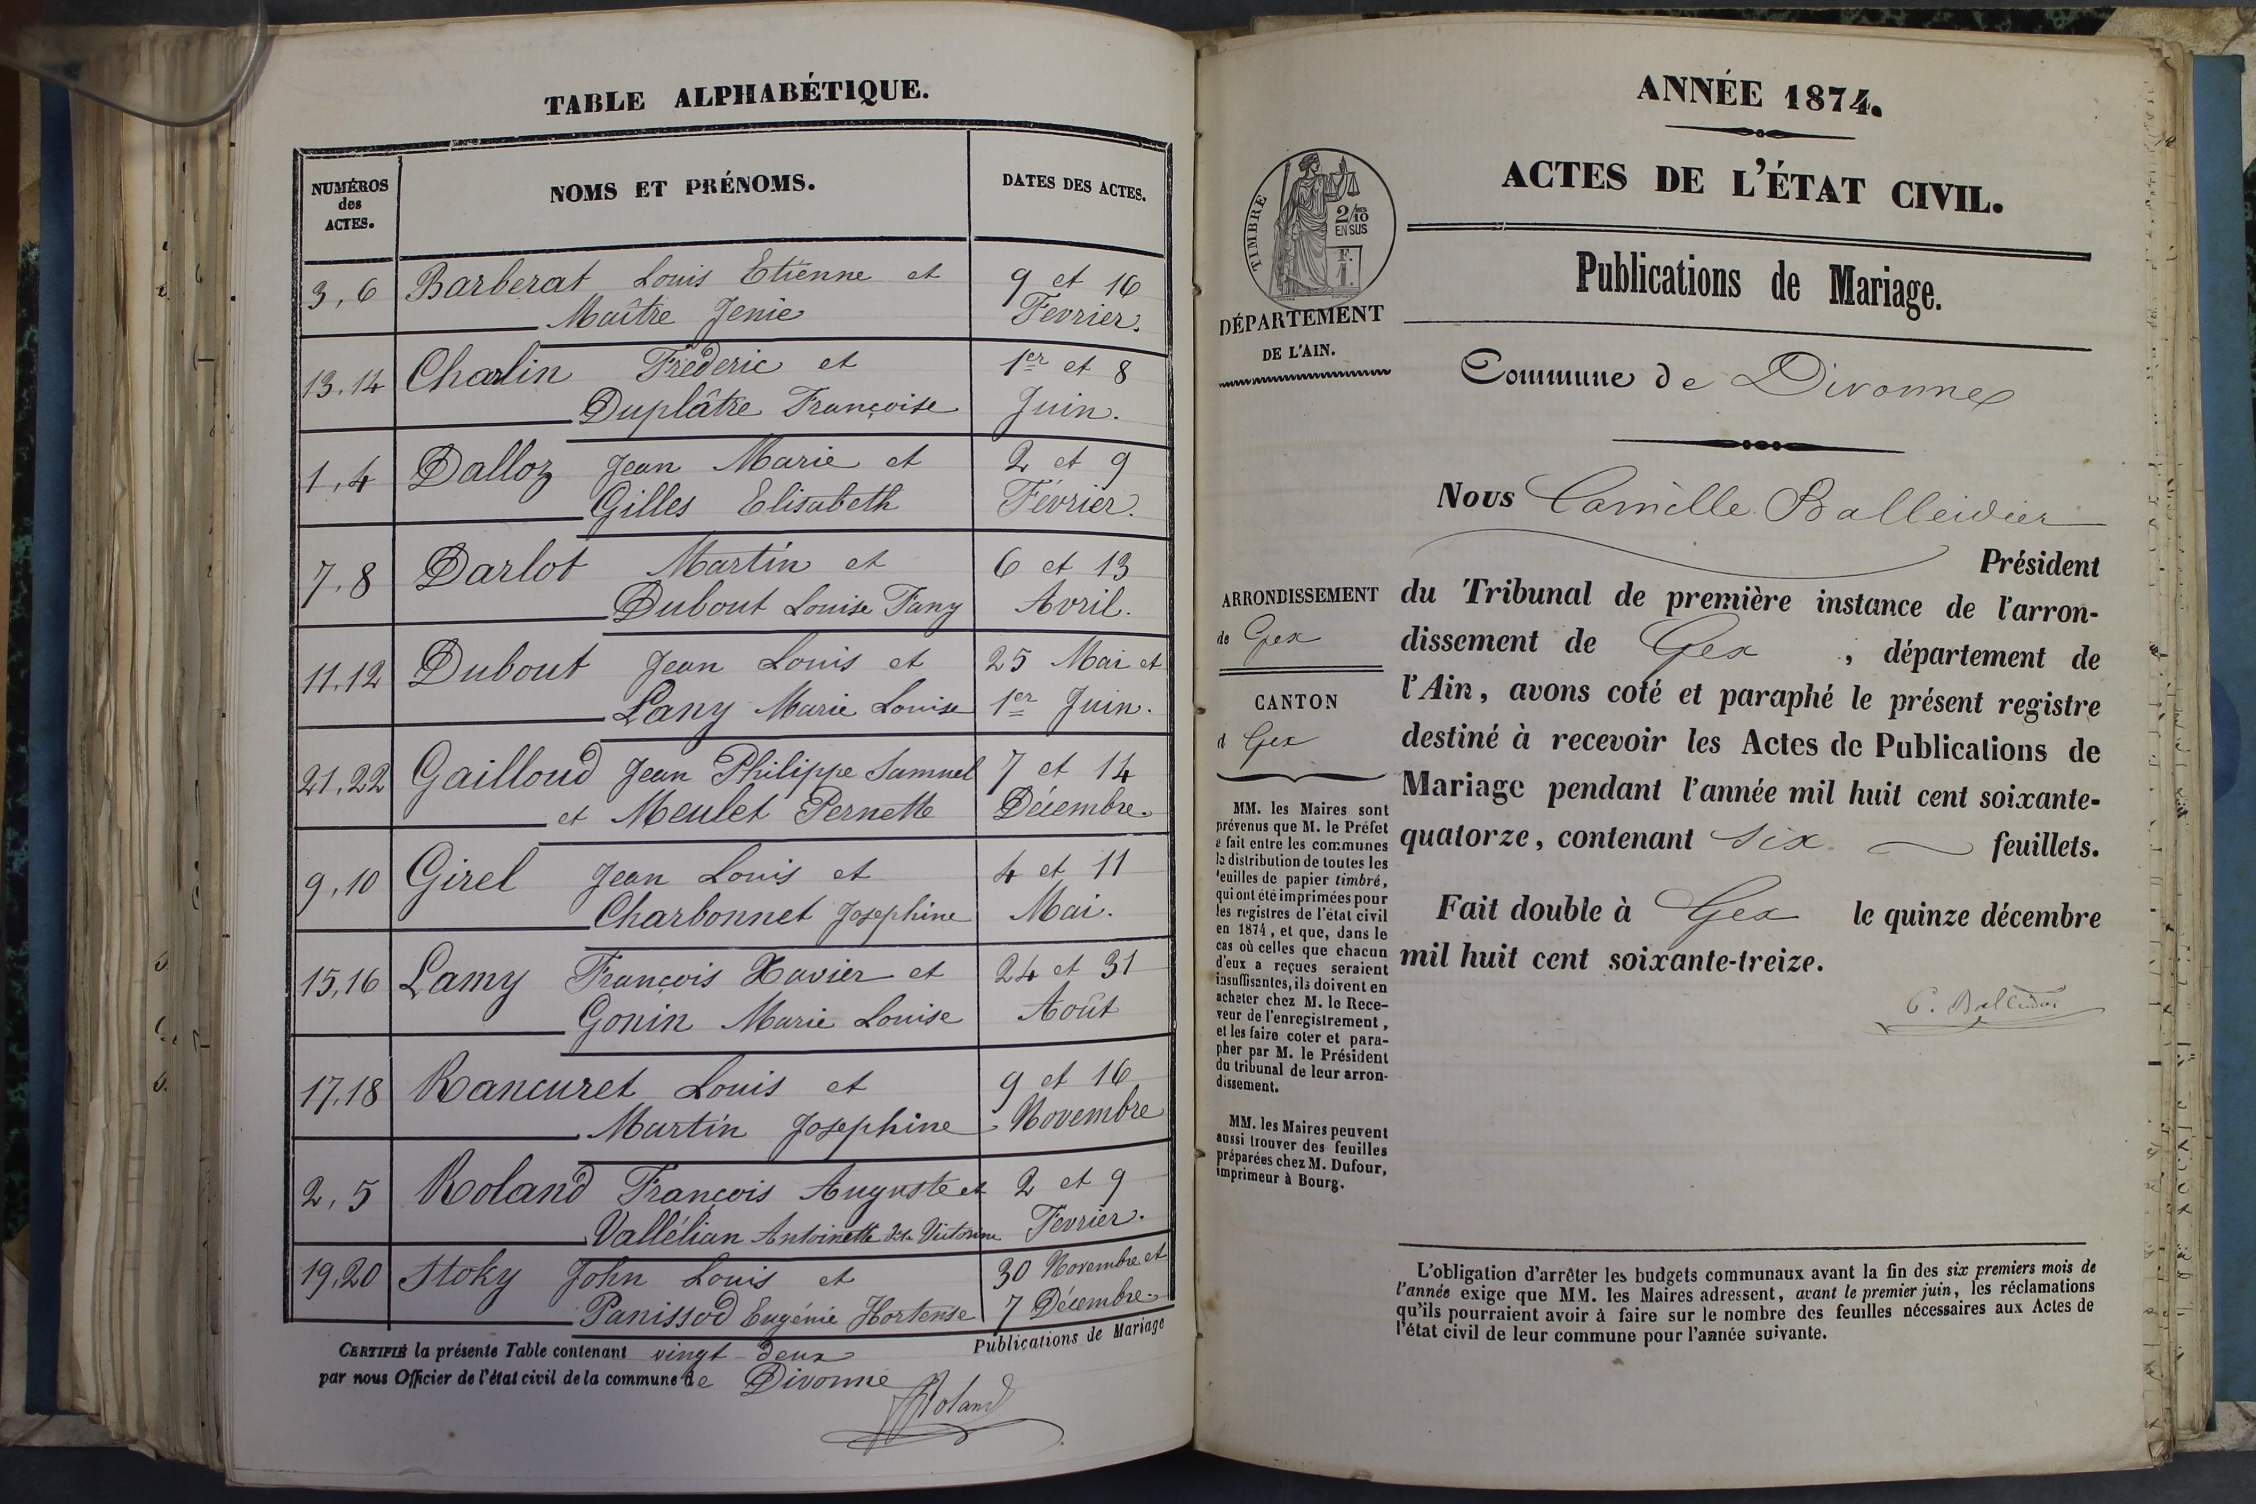 TABLE ALPHABÉTIQUE.
NUMÉROS
des
ACTES.
NOMS ET PRÉNOMS.
DATES DES ACTES.
3, 6 Barberat Louis Etienne et 9 et 16
Maître Jenie Fevrier.
13.14 Charlin Fréderic et 1er et 8
Duplâtre Françoise Juin.
1, 4 Dalloz Jean Marie et 2 et 9
Gilles Elisabeth Février.
7, 8 Darlot Martin et 6 et 13
Dubout Louise Fany Avril.
11.12 Dubout Jean Louis et 25 Mai et
Lany Marie Louise 1er Juin.
21,22 Gailloud Jean Philippe Samuel 7 et 14
et Meulet Pernette Décembre.
9,10 Girel Jean Louis et 4 et 11
Charbonnet Josephine Mai.
15,16 Lamy François Xavier et 24 et 31
Gonin Marie Louise Août
17,18 Rancuret Louis et 9 et 16
Martin Josephine Novembre
2, 5 Roland François Auguste et 2 et 9
Vallélian Antoinette Victorine Fevrier.
19,20 Stoky John Louis et 30 Novembre et
Panissod Eugénie Hortense 7 Décembre.
CERTIFIÉ la présente Table contenant vingt-deux Publications de Mariage
par nous Officier de l'état civil de la commune de Divonne
Roland
ANNÉE 1874.
ACTES DE L'ÉTAT CIVIL.
TIMBRE
2/10
EN SUS
F.
1.
Publications de Mariage.
DÉPARTEMENT
DE L'AIN.
Commune de Divonne
Nous Camille Balleidier
Président
du Tribunal de première instance de l'arron-
dissement de Gex , département de
l'Ain, avons coté et paraphé le présent registre
destiné à recevoir les Actes de Publications de
Mariage pendant l'année mil huit cent soixante-
quatorze, contenant six feuillets.
Fait double à Gex le quinze décembre
mil huit cent soixante-treize.
C. Balleidier
ARRONDISSEMENT
de Gex
CANTON
d Gex
MM. les Maires sont
prévenus que M. le Préfet
a fait entre les communes
la distribution de toutes les
feuilles de papier timbré,
qui ont été imprimées pour
les registres de l'état civil
en 1874, et que, dans le
cas où celles que chacun
d'eux a reçues seraient
insuffisantes, ils doivent en
acheter chez M. le Rece-
veur de l'enregistrement,
et les faire coter et para-
pher par M. le Président
du tribunal de leur arron-
dissement.
MM. les Maires peuvent
aussi trouver des feuilles
préparées chez M. Dufour,
imprimeur à Bourg.
L'obligation d'arrêter les budgets communaux avant la fin des six premiers mois de
l'année exige que MM. les Maires adressent, avant le premier juin, les réclamations
qu'ils pourraient avoir à faire sur le nombre des feuilles nécessaires aux Actes de
l'état civil de leur commune pour l'année suivante.